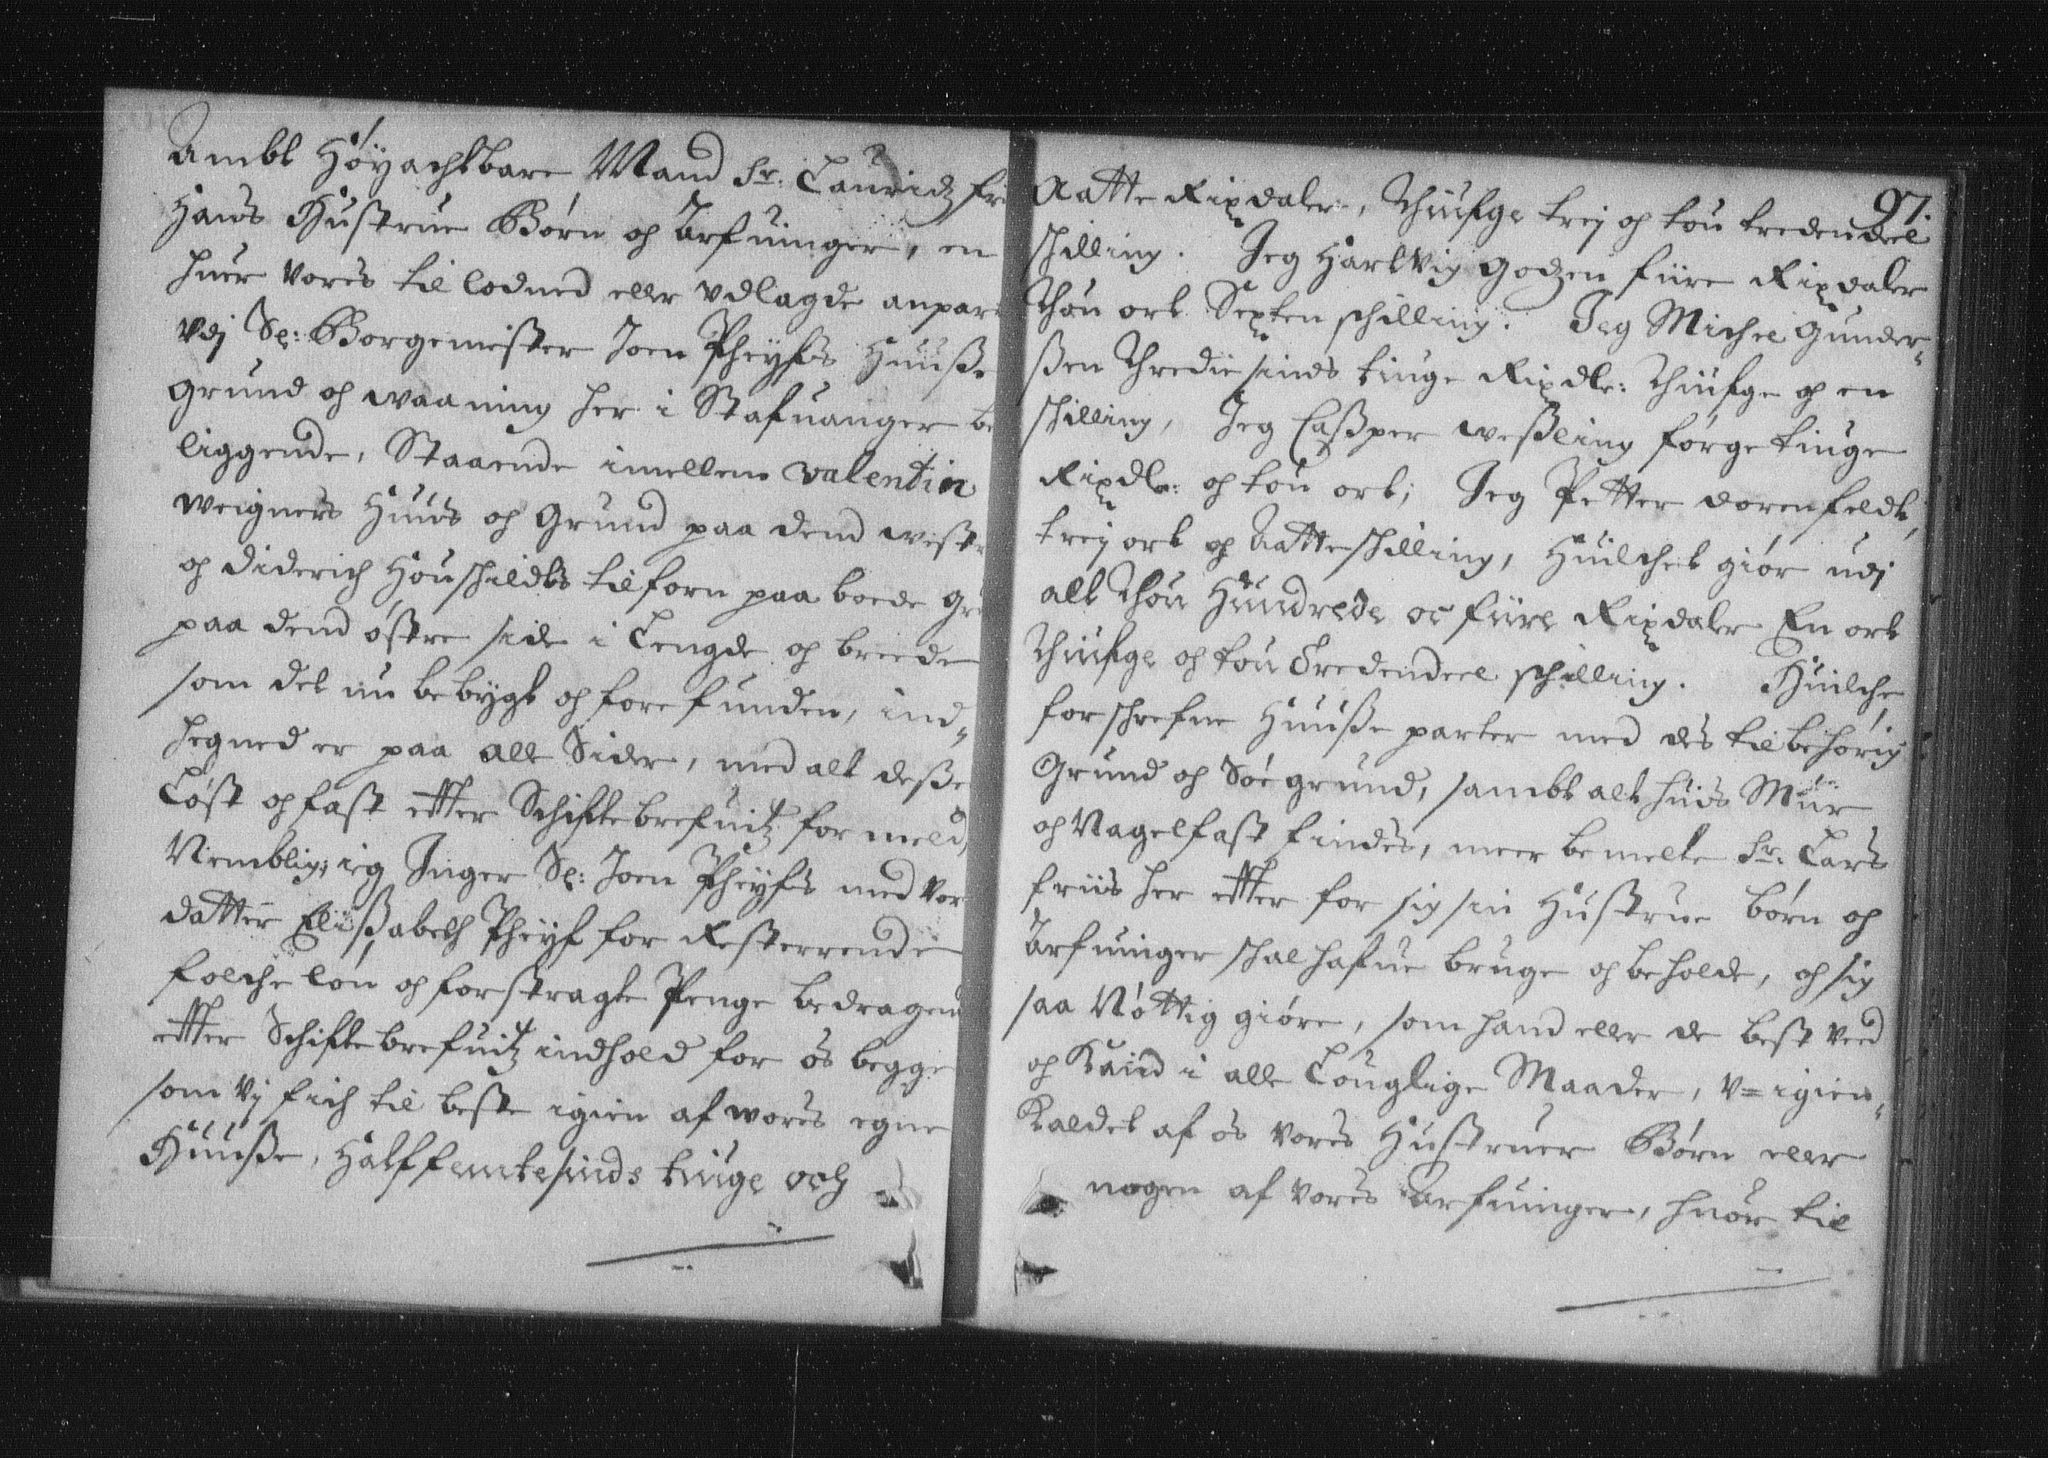 Ambt Høyachtbare Mand Sr: Lauridz Fri
Hans Hustrue Børn og Arfuinger, en
huer vores til lodned eller vdlagde anpar
vdj Sl: Borgemester Joen Pheyfs Huuße
grund og waaning her i Stafuanger be
liggende, Staaende imellem Valentin
Weigners Huus og Grund paa dend westre
og Diderich Houschildts tilforn paa boede Gru
paa dend østre side i Lengde og breede
som det nu bebygt og forefunden, ind-
hegned er paa alle Sider, med alt deße
Løst og fast etter Schiftebrefuitz formeld,
Nemblig; ieg Inger Sl: Joen Pheyfs med vor
datter Elißabeth Pheyf for Resterrende
folche løn og forstragte Penge bedragend
etter Schiftebrefuitz indhold for os begge
som vj fich til beste igien af wores egne
Huuße, Halffemtesinds tiuge och
97.
Aatte Rixdaler, Thiufge trej og tou tredendeel
schilling. Jeg Hartvig Godzen fiire Rixdaler
Thou ort Sexten schilling. Jeg Michel Gunder-
ßen Thredie sinds tiuge Rixdlr: Thiufge og en
schilling, Jeg Caßper Weßling førge tiuge
Rixdlr: og tou ort; Jeg Petter Dorenfeldt,
trej ort og Aatte schilling, Huilchet giør udj
alt Thou Hundrede oc fiire Rixdaler En ort
Thiufge og tou Tredendeel schilling. Huilche
forschrefne Huuße parter med des tilbehørig
Grund og Søe grund, sambt alt huis Muur
og Nagelfast findes, meer bemelte Sr: Lars
Friis her etter for sig sin Hustrue børn og
Arfuinger schal hafue bruge og beholde, og sig
saa Nøttig giøre, som hand eller de best veed
og Kand i alle Louglige Maader, V=igien-
Kaldet af os vores Hustruer Børn eller
nogen af vores Arfuinger, huor til